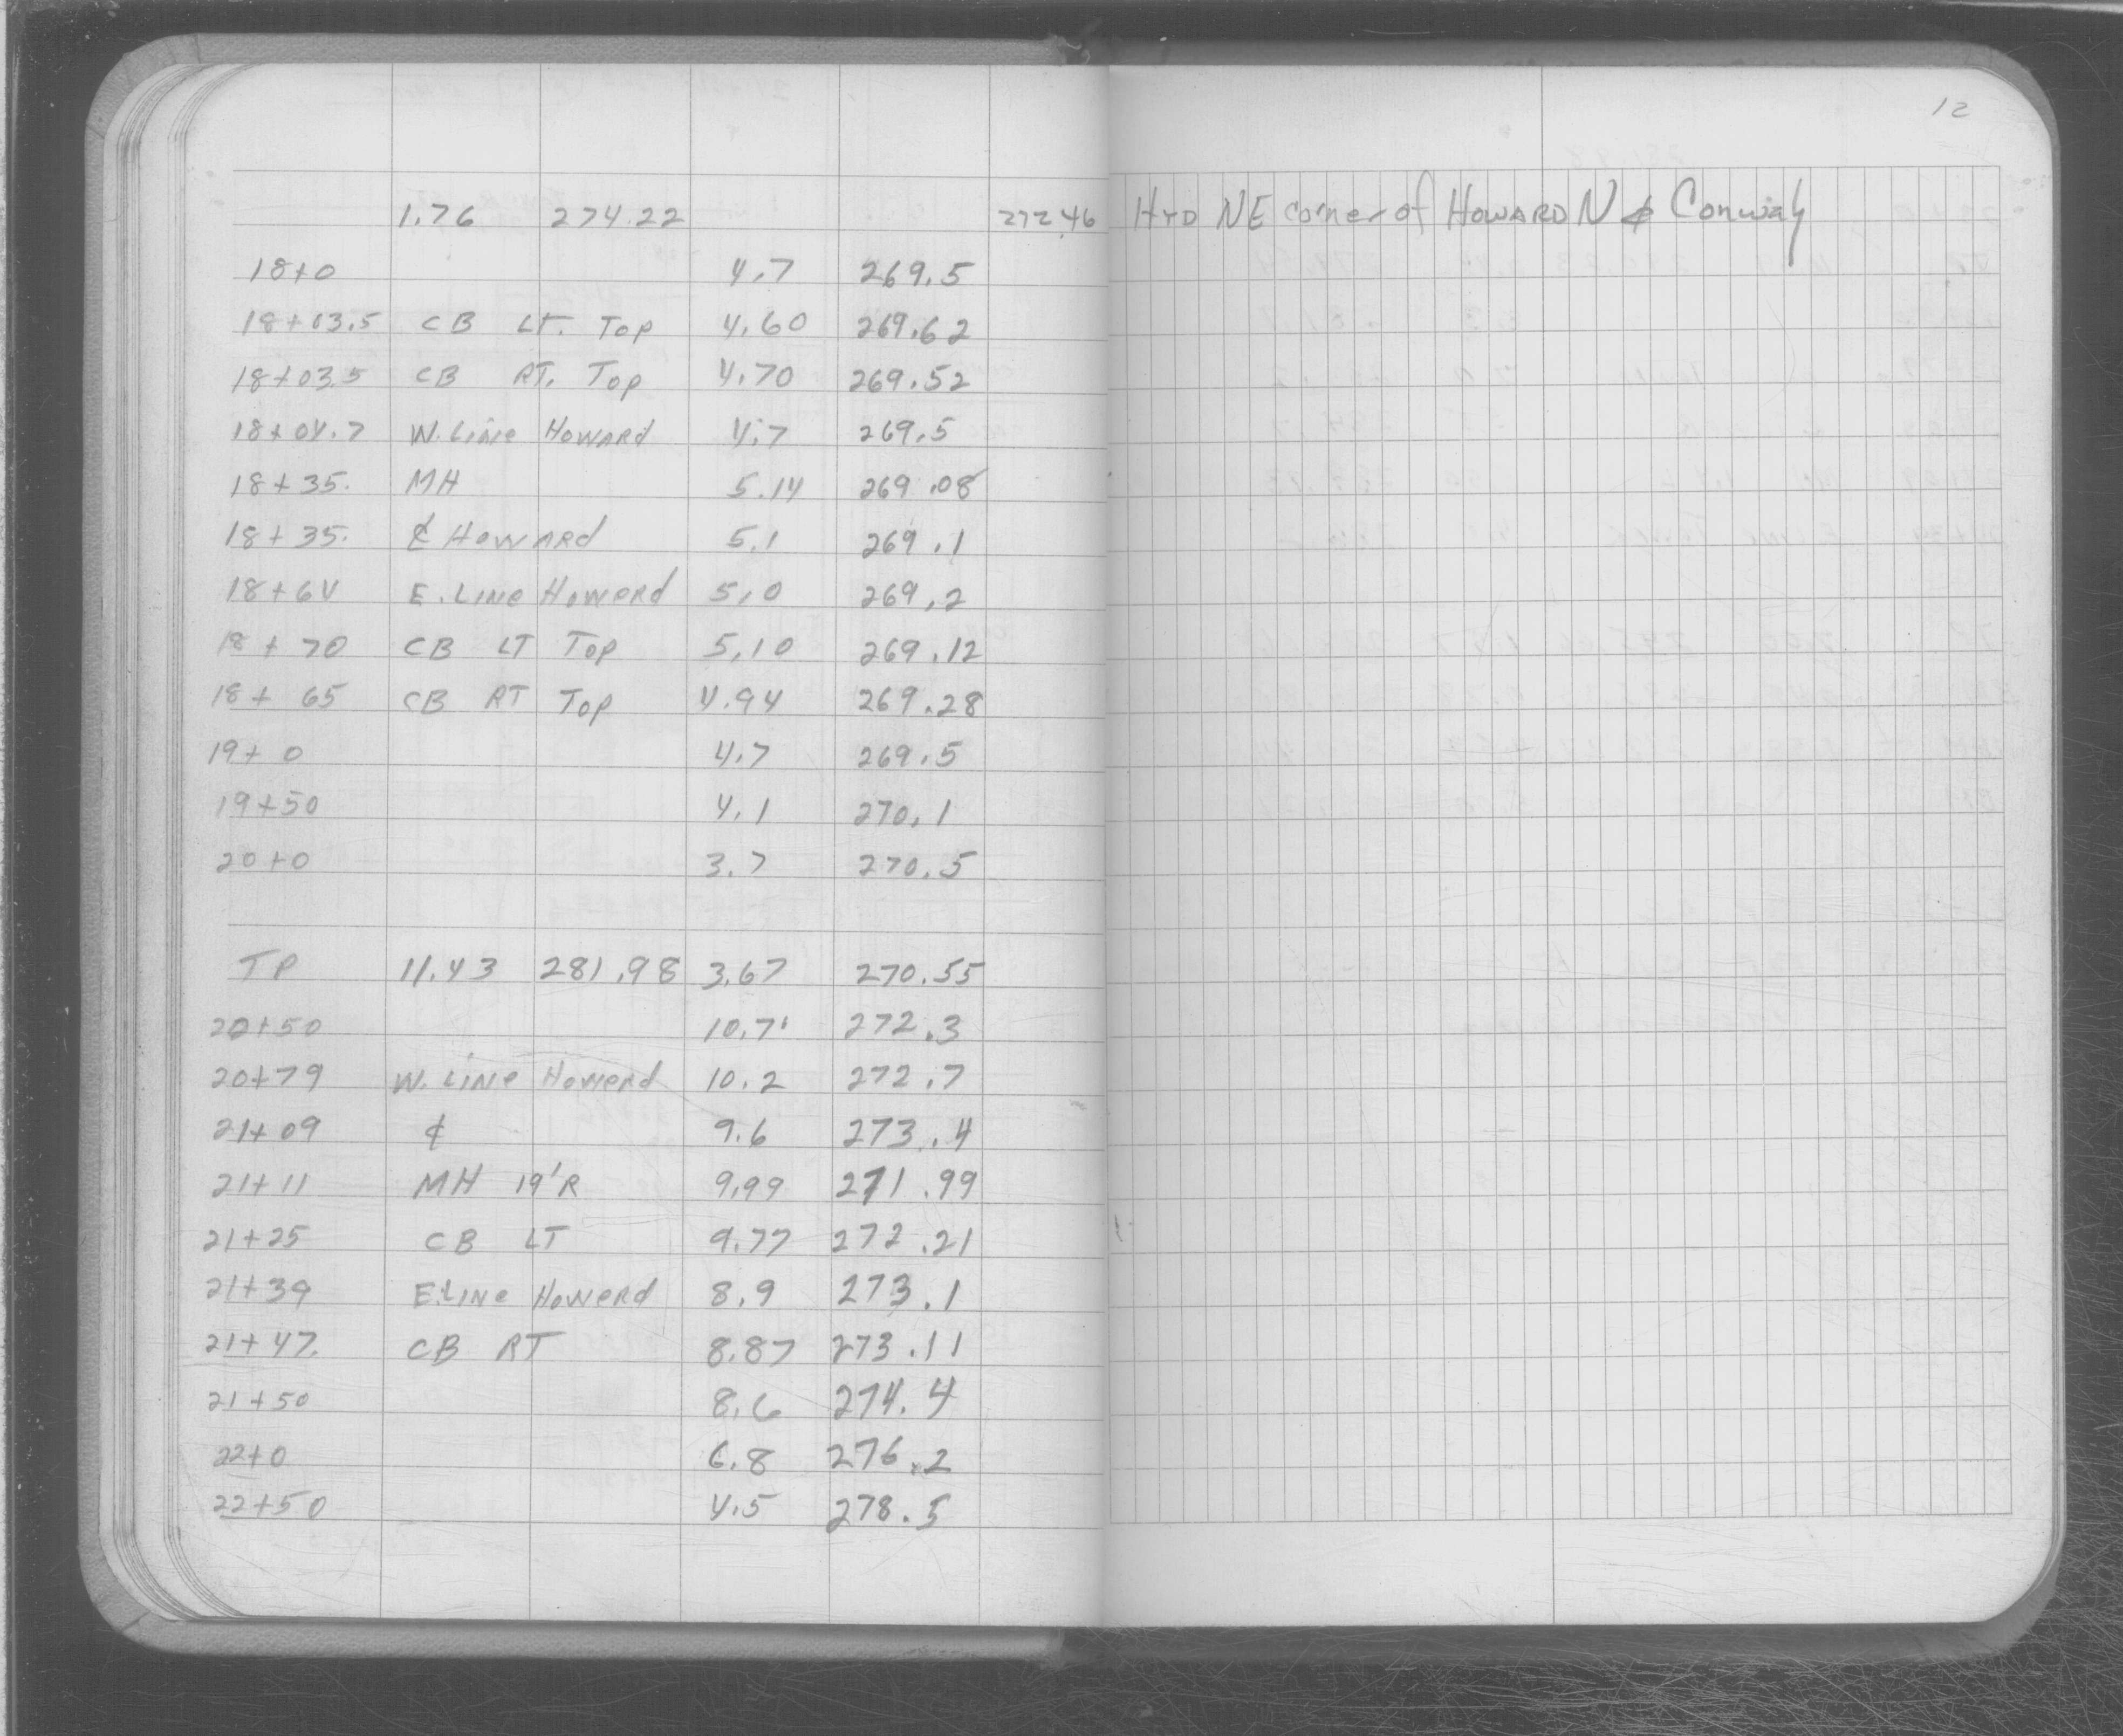 12
1.76 274.22 272.46 HYD NE corner of HOWARD N & Conway
18+0 4.7 269.5
18+03.5 CB LT. Top 4.60 269.62
18+03.5 CB RT. Top 4.70 269.52
18+04.7 W. Line Howard 4.7 269.5
18+35. MH 5.14 269.08
18+35. ₵ Howard 5.1 269.1
18+64 E. Line Howerd 5.0 269.2
18+70 CB LT Top 5.10 269.12
18+65 CB RT Top 4.94 269.28
19+0 4.7 269.5
19+50 4.1 270.1
20+0 3.7 270.5
TP 11.43 281.98 3.67 270.55
20+50 10.7 272.3
20+79 W. Line Howerd 10.2 272.7
21+09 ₵ 9.6 273.4
21+11 MH 19'R 9.99 271.99
21+25 CB LT 9.77 272.21
21+39 E. Line Howerd 8.9 273.1
21+47. CB RT 8.87 273.11
21+50 8.6 274.4
22+0 6.8 276.2
22+50 4.5 278.5